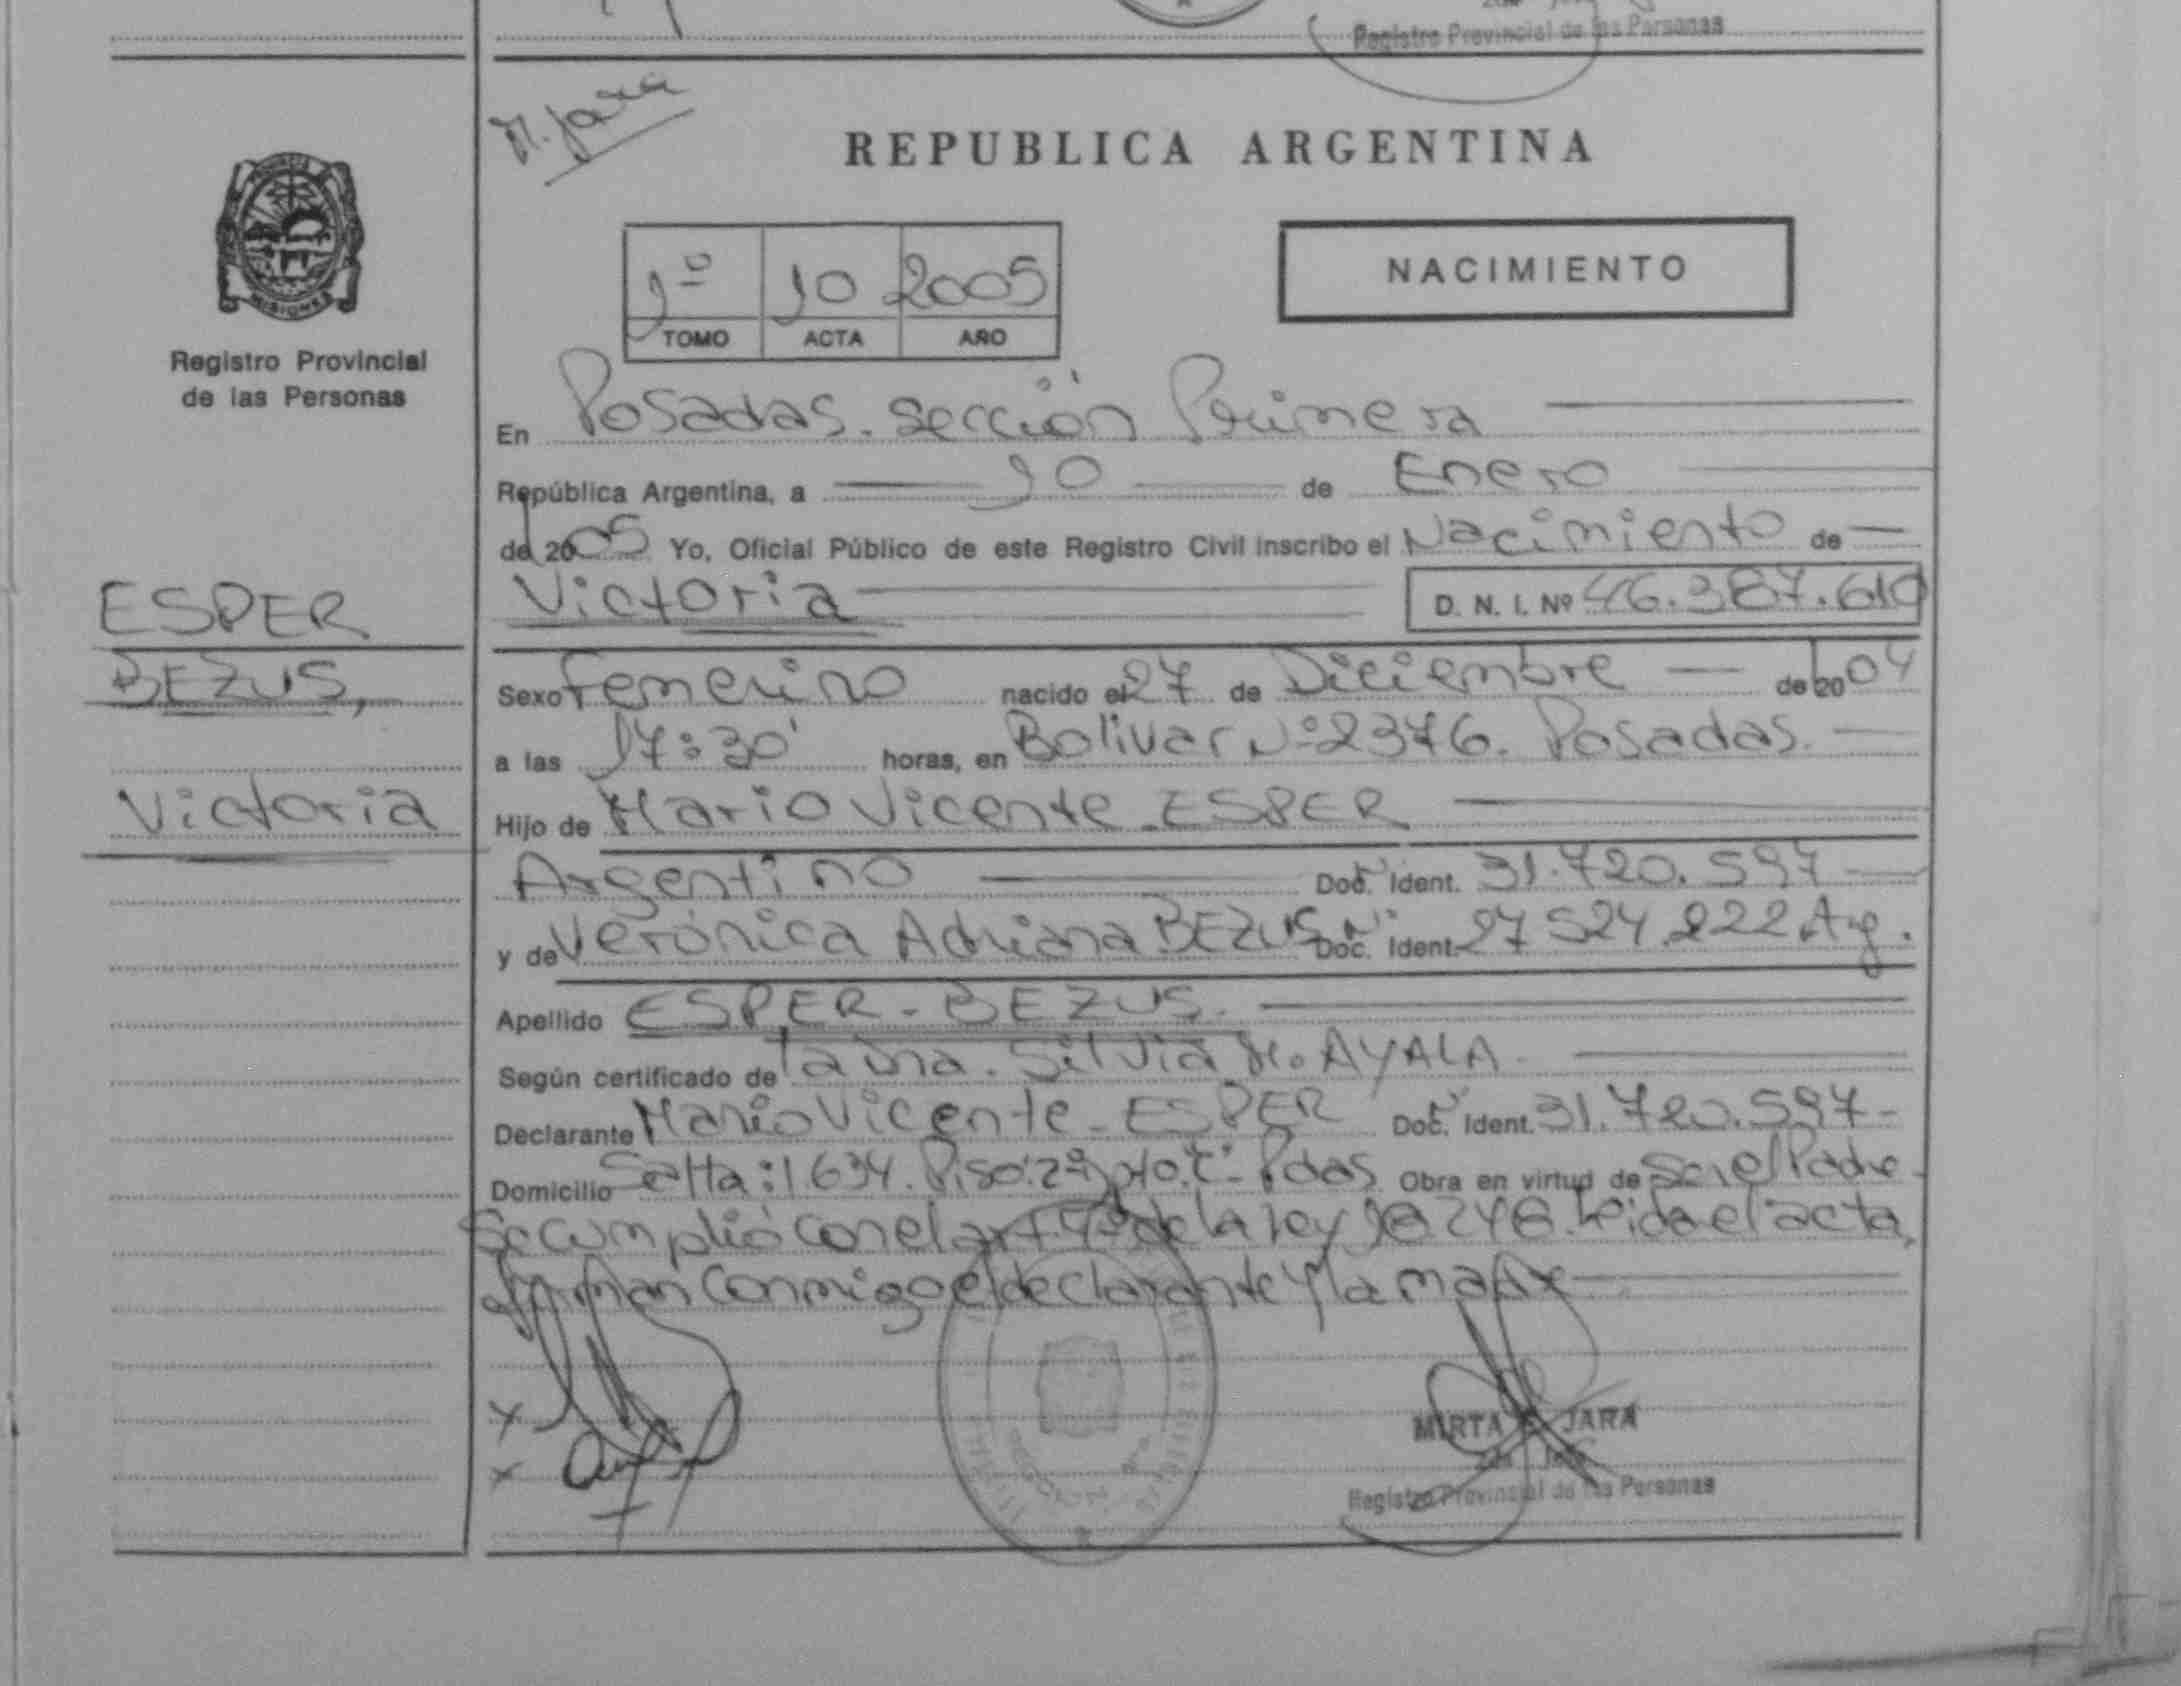 Registro Provincial de las Personas
M. Jara
REPUBLICA ARGENTINA
MISIONES
Registro Provincial
de las Personas
1º 10 2005
TOMO ACTA AÑO
NACIMIENTO
En Posadas. sección Primera
República Argentina, a 10 de Enero
de 2005 Yo, Oficial Público de este Registro Civil inscribo el Nacimiento de
Victoria D. N. I. Nº 46.387.610
ESPER
BEZUS,
Victoria
Sexo Femenino nacido el 27 de Diciembre de 2004
a las 17:30' horas, en Bolivar Nº 2376. Posadas.
Hijo de Mario Vicente ESPER
Argentino Doc. Ident. 31.720.597
y de Verónica Adriana BEZUS Doc. Ident. 27 524.222 Arg.
Apellido ESPER - BEZUS.
Según certificado de la Dra. Silvia M. AYALA
Declarante Mario Vicente - ESPER Doc. Ident. 31.720.597-
Domicilio Salta: 1634. Piso: 2º Pdas Obra en virtud de Ser el Padre
Se cumplió con el art. 4º de la Ley 18.248. Leida el acta,
firman conmigo el declarante y la madre
MIRTA JARA
Registro Provincial de las Personas